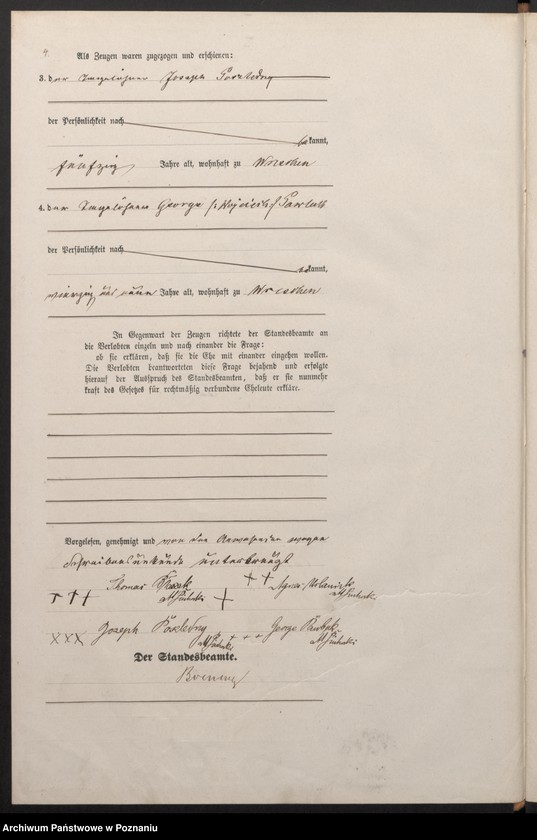 4.
Als Zeugen waren zugezogen und erschienen:
3. der Tagelöhner Joseph
der Persönlichkeit nach
bekannt,
fünfzig Jahre alt, wohnhaft zu Wreschen
4. der Tagelöhner George
der Persönlichkeit nach
bekannt,
vierzig und neun Jahre alt, wohnhaft zu Wreschen
In Gegenwart der Zeugen richtete der Standesbeamte an
die Verlobten einzeln und nach einander die Frage:
ob sie erklären, daß sie die Ehe mit einander eingehen wollen.
Die Verlobten beantworteten diese Frage bejahend und erfolgte
hierauf der Ausspruch des Standesbeamten, daß er sie nunmehr
kraft des Gesetzes für rechtmäßig verbundene Eheleute erkläre.
Vorgelesen, genehmigt und von den Anwesenden wegen
Schreibensunkunde unterkreuzt
Thomas
+++ ++ Agnes
XXX Joseph +++ George
Der Standesbeamte.
Archiwum Państwowe w Poznaniu